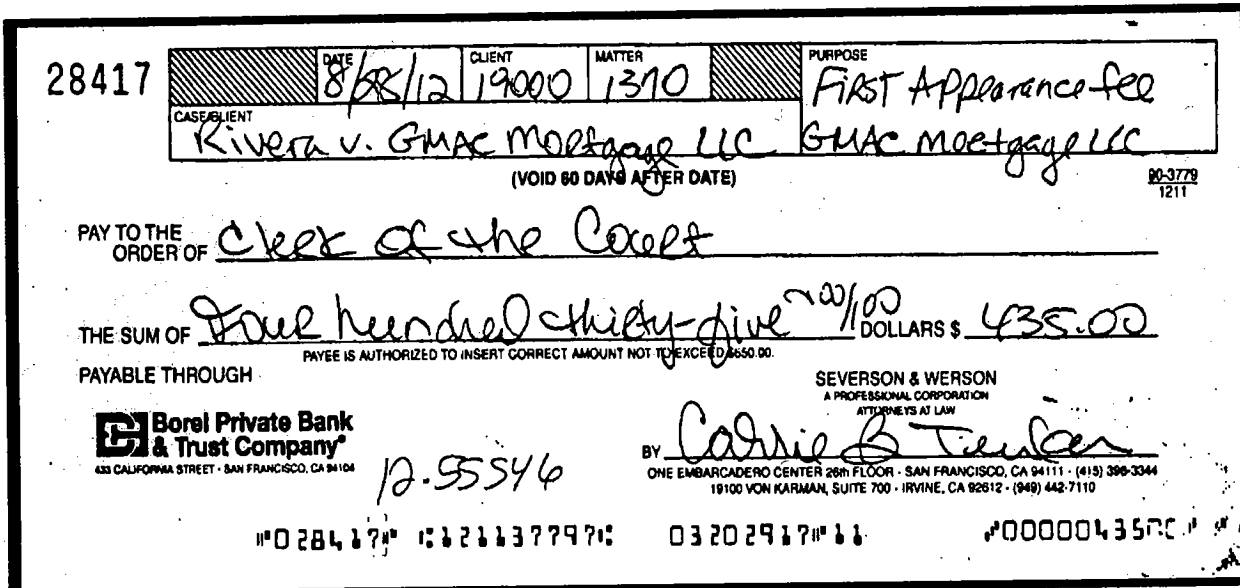 28417
DATE 8/28/12 CLIENT 19000 MATTER 1370 PURPOSE First Appearance fee
CASE/CLIENT Rivera v. GMAC Mortgage LLC GMAC Mortgage LLC
(VOID 60 DAYS AFTER DATE)
90-3779
1211
PAY TO THE
ORDER OF Clerk of the Court
THE SUM OF Four hundred thirty-five ~00/100 DOLLARS $ 435.00
PAYEE IS AUTHORIZED TO INSERT CORRECT AMOUNT NOT TO EXCEED $650.00.
PAYABLE THROUGH
Borel Private Bank
& Trust Company®
433 CALIFORNIA STREET - SAN FRANCISCO, CA 94104
12-55546
SEVERSON & WERSON
A PROFESSIONAL CORPORATION
ATTORNEYS AT LAW
BY Carrie B
ONE EMBARCADERO CENTER 26th FLOOR - SAN FRANCISCO, CA 94111 - (415) 398-3344
19100 VON KARMAN, SUITE 700 - IRVINE, CA 92612 - (949) 442-7110
⑈028417⑈ ⑆121137797⑆ 03202917⑈11